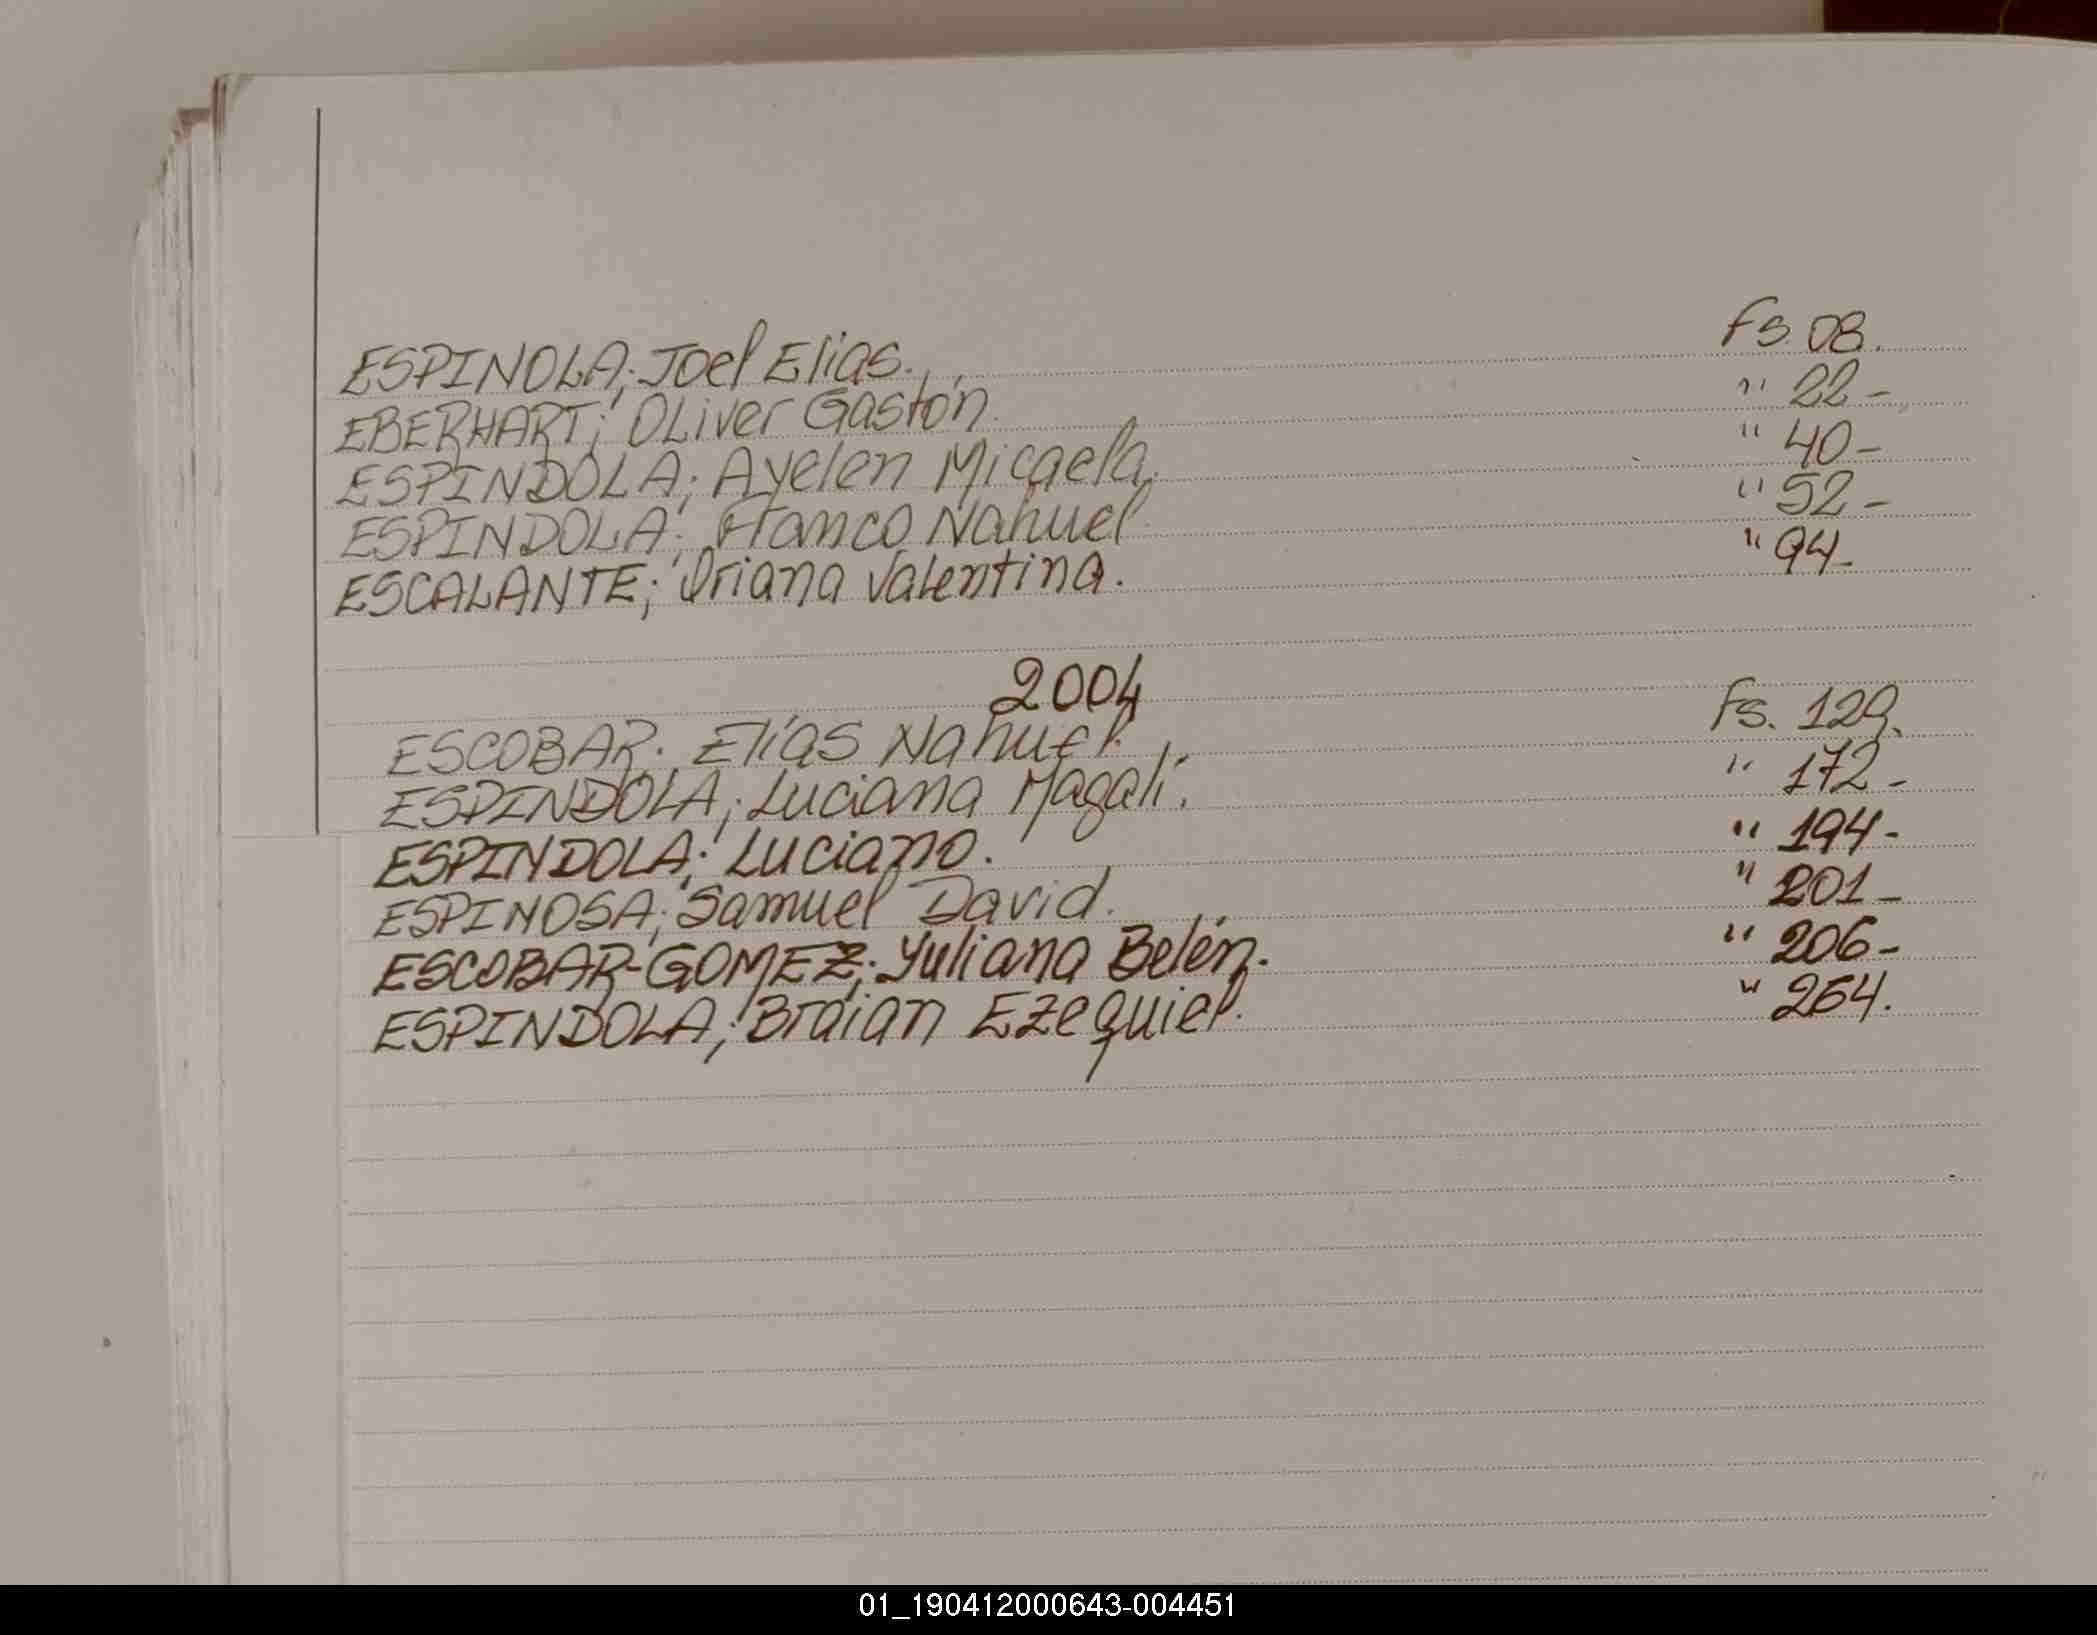 ESPINOLA; Joel Elias. Fs. 08.
EBERHART; OLiver Gastón. " 22-
ESPINDOLA; Ayelen Micaela. " 40-
ESPINDOLA; Franco Nahuel. " 52-
ESCALANTE; Oriana Valentina. " 94-
2004
ESCOBAR. Elías Nahuel. Fs. 129.
ESPINDOLA; Luciana Magalí. " 172-
ESPINDOLA; Luciano. " 194-
ESPINOSA; Samuel David. " 201-
ESCOBAR-GOMEZ; Yuliana Belén. " 206-
ESPINDOLA; Braian Ezequiel. " 264.
01_190412000643-004451